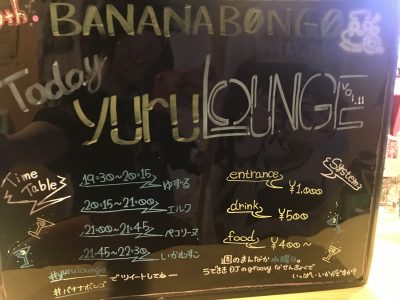 0th.
BANANABONGO
Today
yuru LOUNGE
vol.11
Time Table
19:30~20:15 ゆずる
20:15~21:00 エルワ
21:00~21:45 ペコリーヌ
21:45~22:30 いかむすこ
System
entrance ¥1,000
drink ¥500
food ¥400~
#yurulounge
#バナナボンゴ
でツイートしてねー
週のまんなか水曜日。
うてきまDJのgroovyなせんきょくで
いっぱいいかがですか?